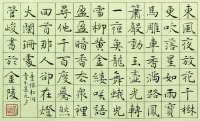 東風夜放花千樹
更吹落星如雨寶
馬雕車香滿路鳳
簫聲動玉壺光轉
一夜魚龍舞蛾兒
雪柳黃金縷笑語
盈盈暗香去眾裡
尋他千百度驀然
回首那人卻在燈
火闌珊處
管峻書於金陵